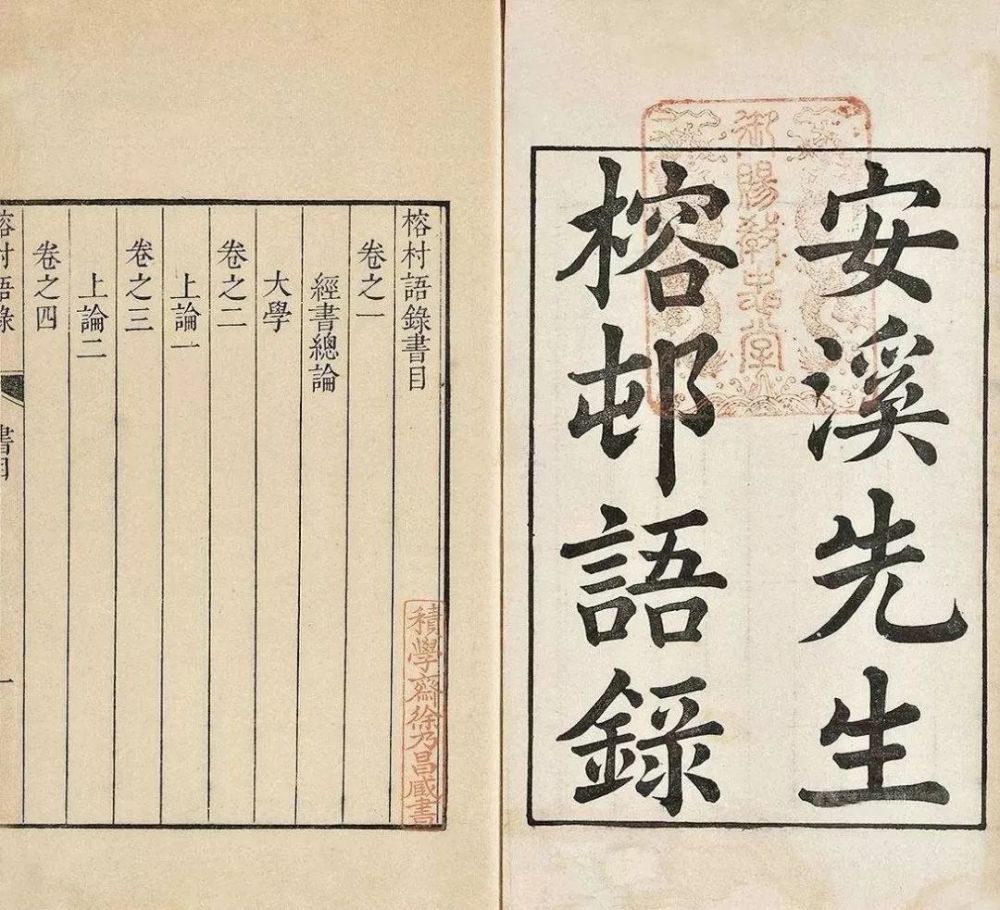 安溪先生
榕邨語錄
御賜教忠堂
榕村語錄書目
卷之一
經書總論
大學
卷之二
上論一
卷之三
上論二
卷之四
榕村語錄 書目 一
積學齋徐乃昌藏書